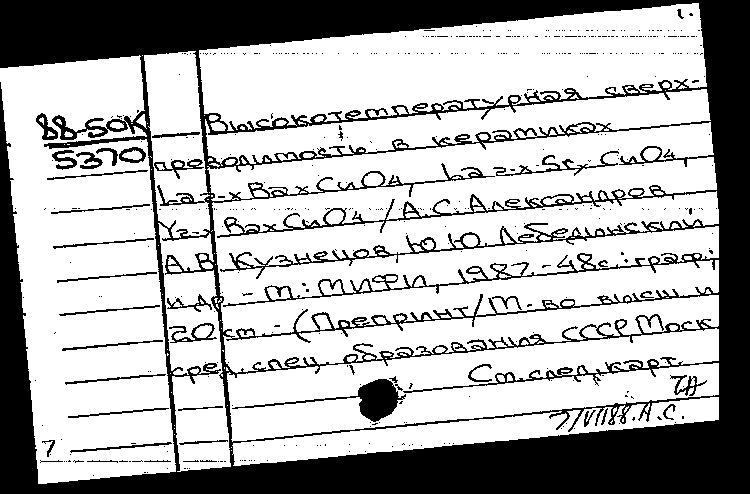 1.
88-50К
5370
Высокотемпературная сверх-
проводимость в керамиках
La2-xBaxCuO4, La2-xSrxCuO4,
Y2-xBaxCuO4 / А.С. Александров,
А.В. Кузнецов, Ю.Ю. Лебединский
и др. - М.: МИФИ, 1987. - 48с.: граф.;
20 см. - (Препринт / М-во высш. и
сред. спец. образования СССР, Моск.
См. след. карт.
7/VII88. А.С.
7